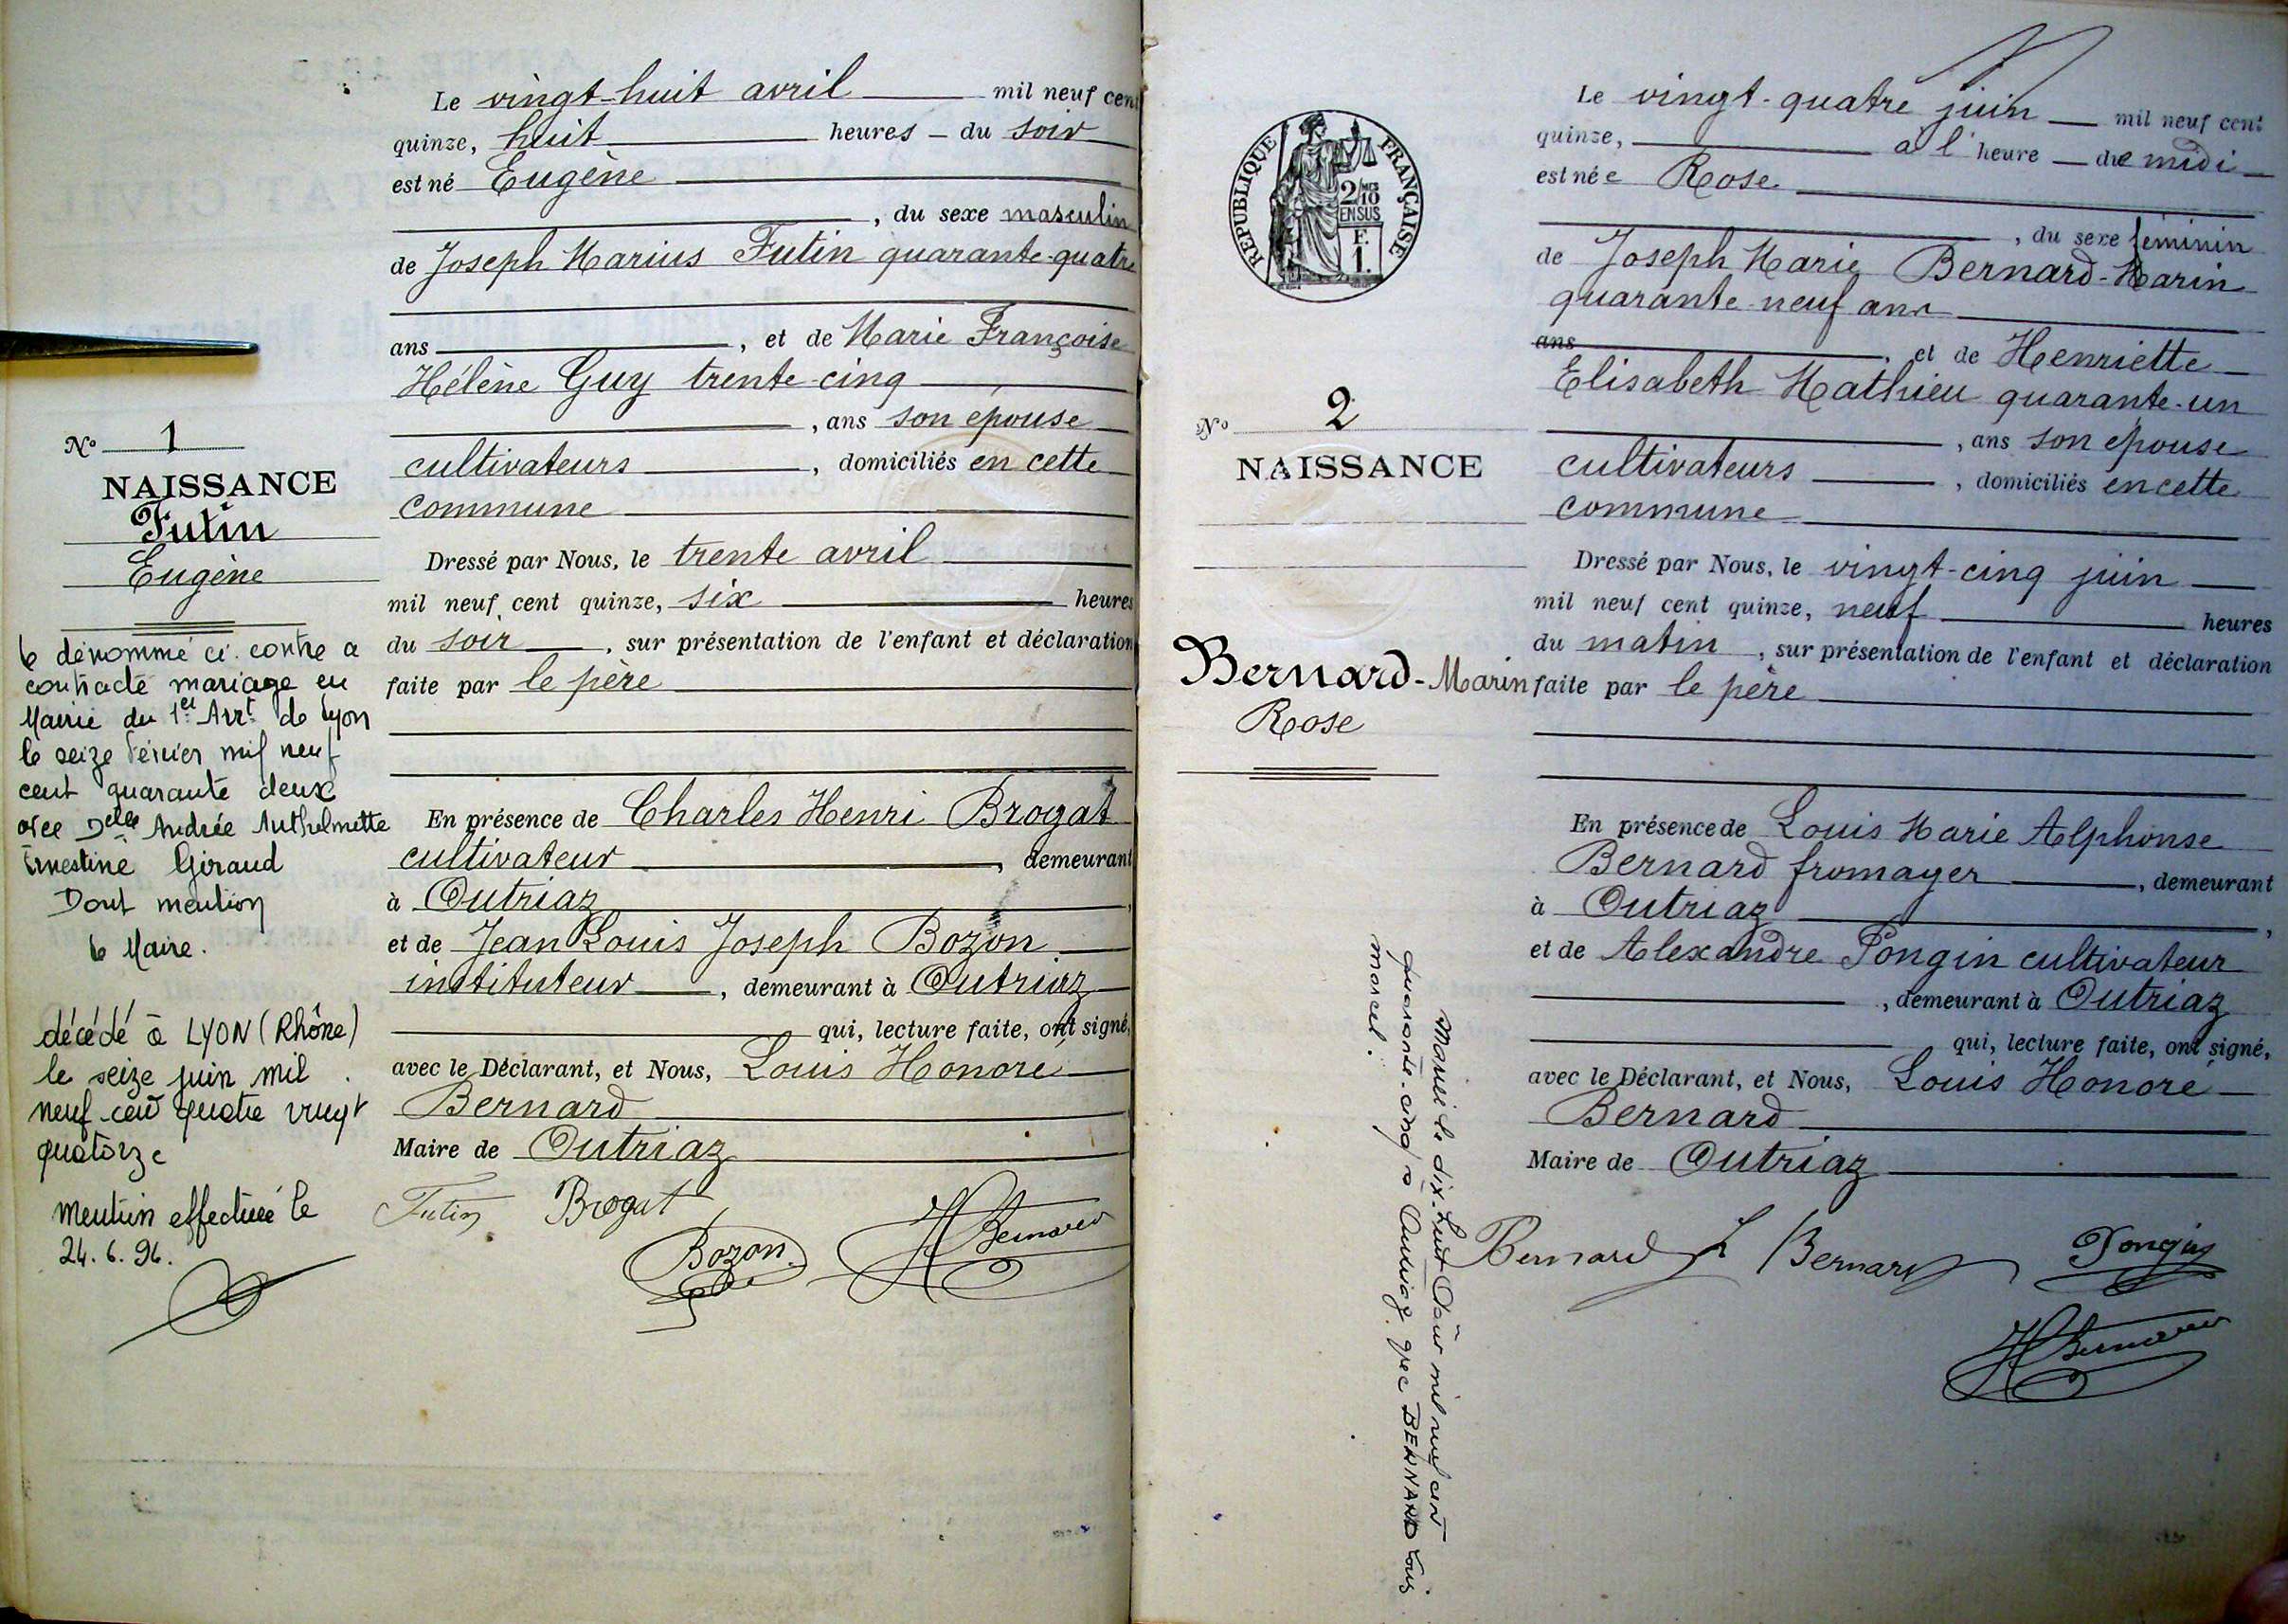 Le vingt-huit avril mil neuf cent
quinze, huit heures - du soir
est né Eugène
, du sexe masculin
de Joseph Marius Futin quarante-quatre
ans, et de Marie Françoise
Hélène Guy trente-cinq
, ans son épouse
cultivateurs, domiciliés en cette
commune
Dressé par Nous, le trente avril
mil neuf cent quinze, six heures
du soir, sur présentation de l'enfant et déclaration
faite par le père
En présence de Charles Henri Brogat
cultivateur, demeurant
à Outriaz,
et de Jean Louis Joseph Bozon
instituteur, demeurant à Outriaz
qui, lecture faite, ont signé,
avec le Déclarant, et Nous, Louis Honoré
Bernard
Maire de Outriaz
Futin Brogat
Bozon HBernard
No 1
NAISSANCE
Futin
Eugène
le dénommé ci-contre a
contracté mariage en
Mairie du 1er Arrt de Lyon
le seize février mil neuf
cent quarante deux
avec Delle Andrée Anthelmette
Ernestine Giraud
Dont mention
le Maire.
décédé à LYON (Rhône)
le seize juin mil
neuf cent quatre vingt
quatorze
mention effectuée le
24.6.94.
RÉPUBLIQUE FRANÇAISE
2/10 MES
EN SUS
F.
1.
No 2
NAISSANCE
Bernard-Marin
Rose
Marié le dix-huit Août mil neuf cent
quarante-cinq à Outriaz avec BERNARD Louis
Marcel.
Le vingt-quatre juin mil neuf cent
quinze, à l'heure - de midi
est née Rose
, du sexe féminin
de Joseph Marie Bernard-Marin
quarante-neuf ans
ans, et de Henriette
Elisabeth Mathieu quarante-un
, ans son épouse
cultivateurs, domiciliés en cette
commune
Dressé par Nous, le vingt-cinq juin
mil neuf cent quinze, neuf heures
du matin, sur présentation de l'enfant et déclaration
faite par le père
En présence de Louis Marie Alphonse
Bernard fromager, demeurant
à Outriaz,
et de Alexandre Pongin cultivateur
, demeurant à Outriaz
qui, lecture faite, ont signé,
avec le Déclarant, et Nous, Louis Honoré
Bernard
Maire de Outriaz
Bernard L Bernard Pongin
HBernard